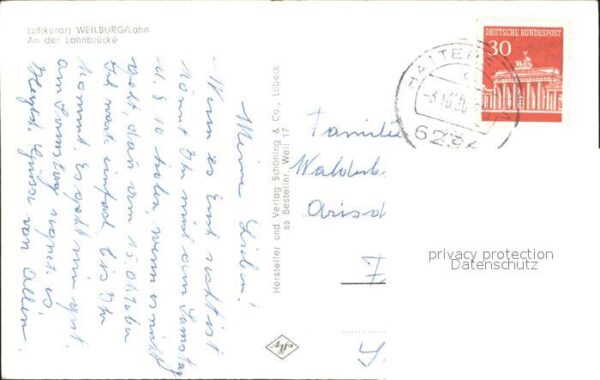 Luftkurort WEILBURG/Lahn
An der Lahnbrücke
Meine Lieben!
Wenn es Euch recht ist
könnt Ihr und am Samstag
d. 8. 10 holen, wenn es nicht
geht, dann am 15. Oktober
Ich warte einfach bis Ihr
kommt. Es geht mir gut.
am Sonntag regnet es
Herzlich Grüsse von Allen.
Hersteller und Verlag Schöning & Co., Lübeck
ss Bestellnr. Weil 17
Familie
Walderb
Arisd
DEUTSCHE BUNDESPOST
30
HATTE
6232
privacy protection
Datenschutz